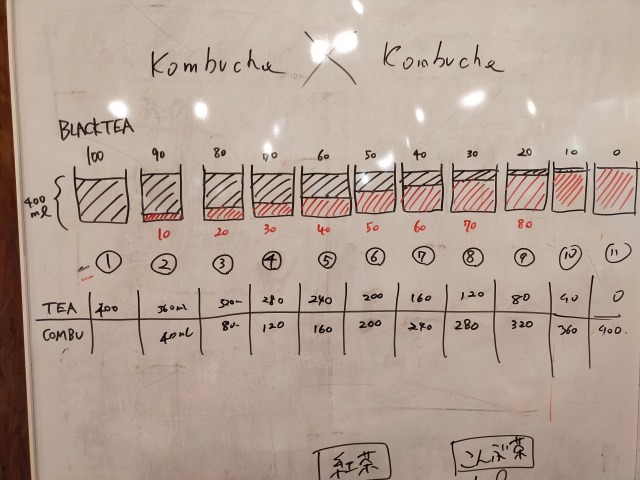 Kombucha × Kombucha
BLACKTEA
100 90 80 70 60 50 40 30 20 10 0
400 ml
10 20 30 40 50 60 70 80
① ② ③ ④ ⑤ ⑥ ⑦ ⑧ ⑨ ⑩ ⑪
TEA 400 360ml 320 280 240 200 160 120 80 40 0
COMBU 40ml 80 120 160 200 240 280 320 360 400
紅茶 こんぶ茶